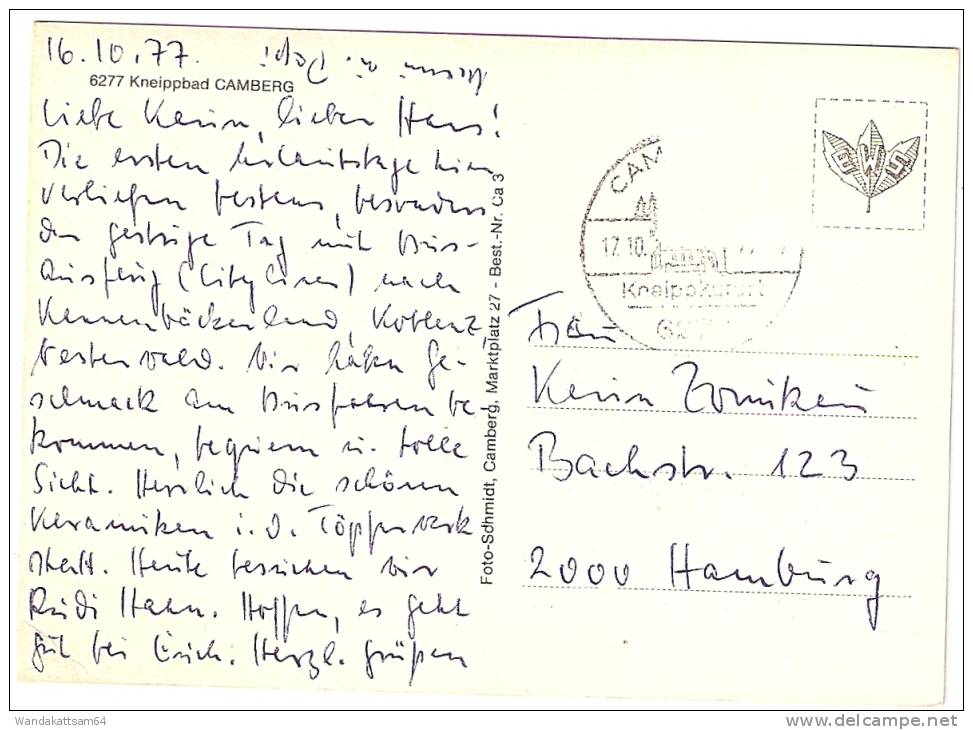 16.10.77.
6277 Kneippbad CAMBERG
Liebe Karin, lieber Hans!
Die ersten Urlaubstage hier
verliefen bestens, besonders
der gestrige Tag mit Bus-
ausflug (Cityliner) nach
Kannenbäckerland, Koblenz
Westerwald. Wir haben Ge-
schmack am Busfahren be
kommen, bequem u. tolle
Sicht. Herrlich die schönen
Keramiken i. d. Töpferwerk
statt. Heute besuchen wir
Rudi Hahn. Hoffen, es geht
gut bei Euch. Herzl. Grüßen
u.
Foto-Schmidt, Camberg, Marktplatz 27 - Best.-Nr. Ca 3
CAM
17.10.
Kneippkurort
6277
EWS
Frau
Karin
Bachstr. 123
2000 Hamburg
Wandakattsam64
delcampe.net